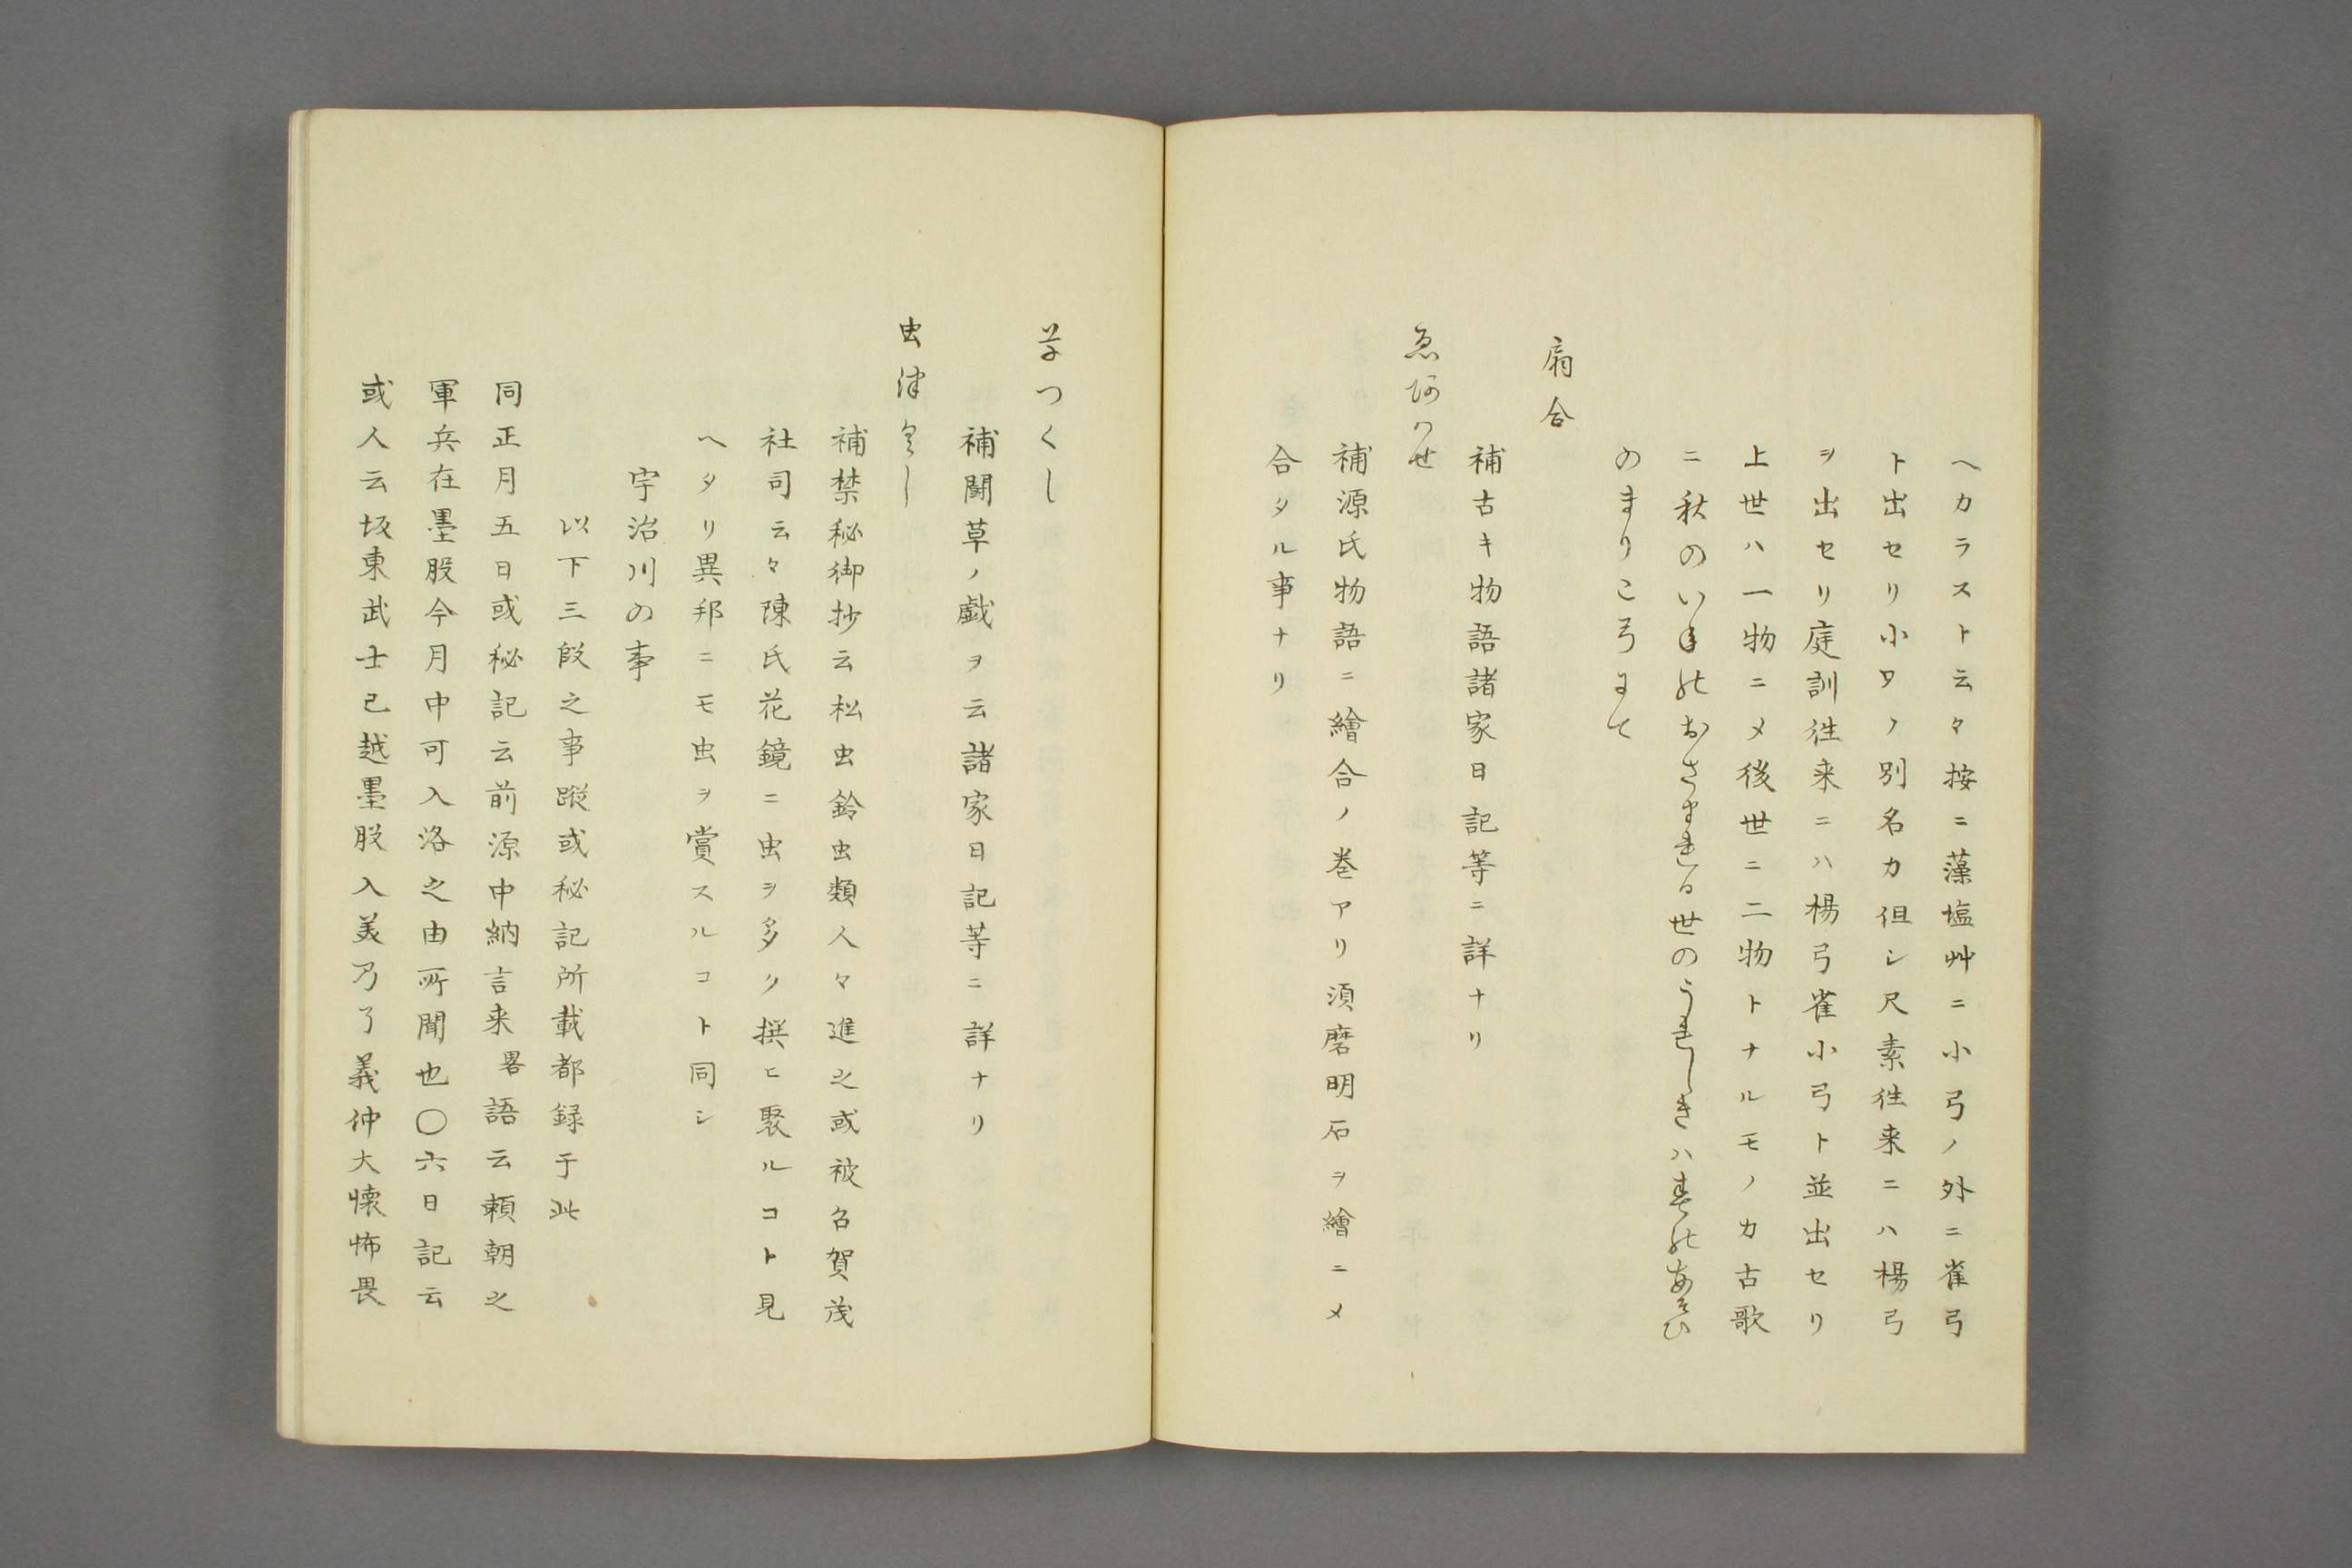 ヘカラスト云々按ニ藻塩艸ニ小弓ノ外ニ雀弓
ト出セリ小ワノ別名カ但シ尺素往来ニハ楊弓
ヲ出セリ庭訓往来ニハ楊弓雀小弓ト並出セリ
上世ハ一物ニメ後世ニ二物トナルモノカ古歌
ニ秋のいねおさまれる世のうれしきハ春のあそひ
のまりこ弓まて
扇合
補古キ物語諸家日記等ニ詳ナリ
ゑあはせ
補源氏物語ニ繪合ノ巻アリ須磨明石ヲ繪ニメ
合タル事ナリ
草つくし
補闘草ノ戯ヲ云諸家日記等ニ詳ナリ
虫津くし
補禁秘御抄云松虫鈴虫類人々進之或被召賀茂
社司云々陳氏花鏡ニ虫ヲ多ク撰ヒ聚ルコト見
ヘタリ異邦ニモ虫ヲ賞スルコト同シ
宇治川の事
以下三段之事蹤或秘記所載都録于此
同正月五日或秘記云前源中納言来畧語云頼朝之
軍兵在墨股今月中可入洛之由所聞也〇六日記云
或人云坂東武士已越墨股入美乃了義仲大懐怖畏